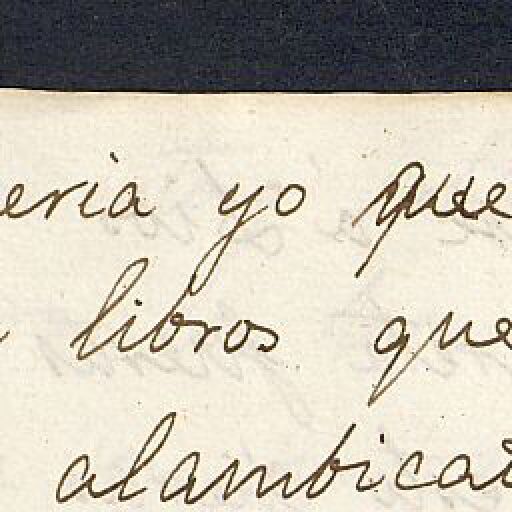 eria yo que
libros que
alambica